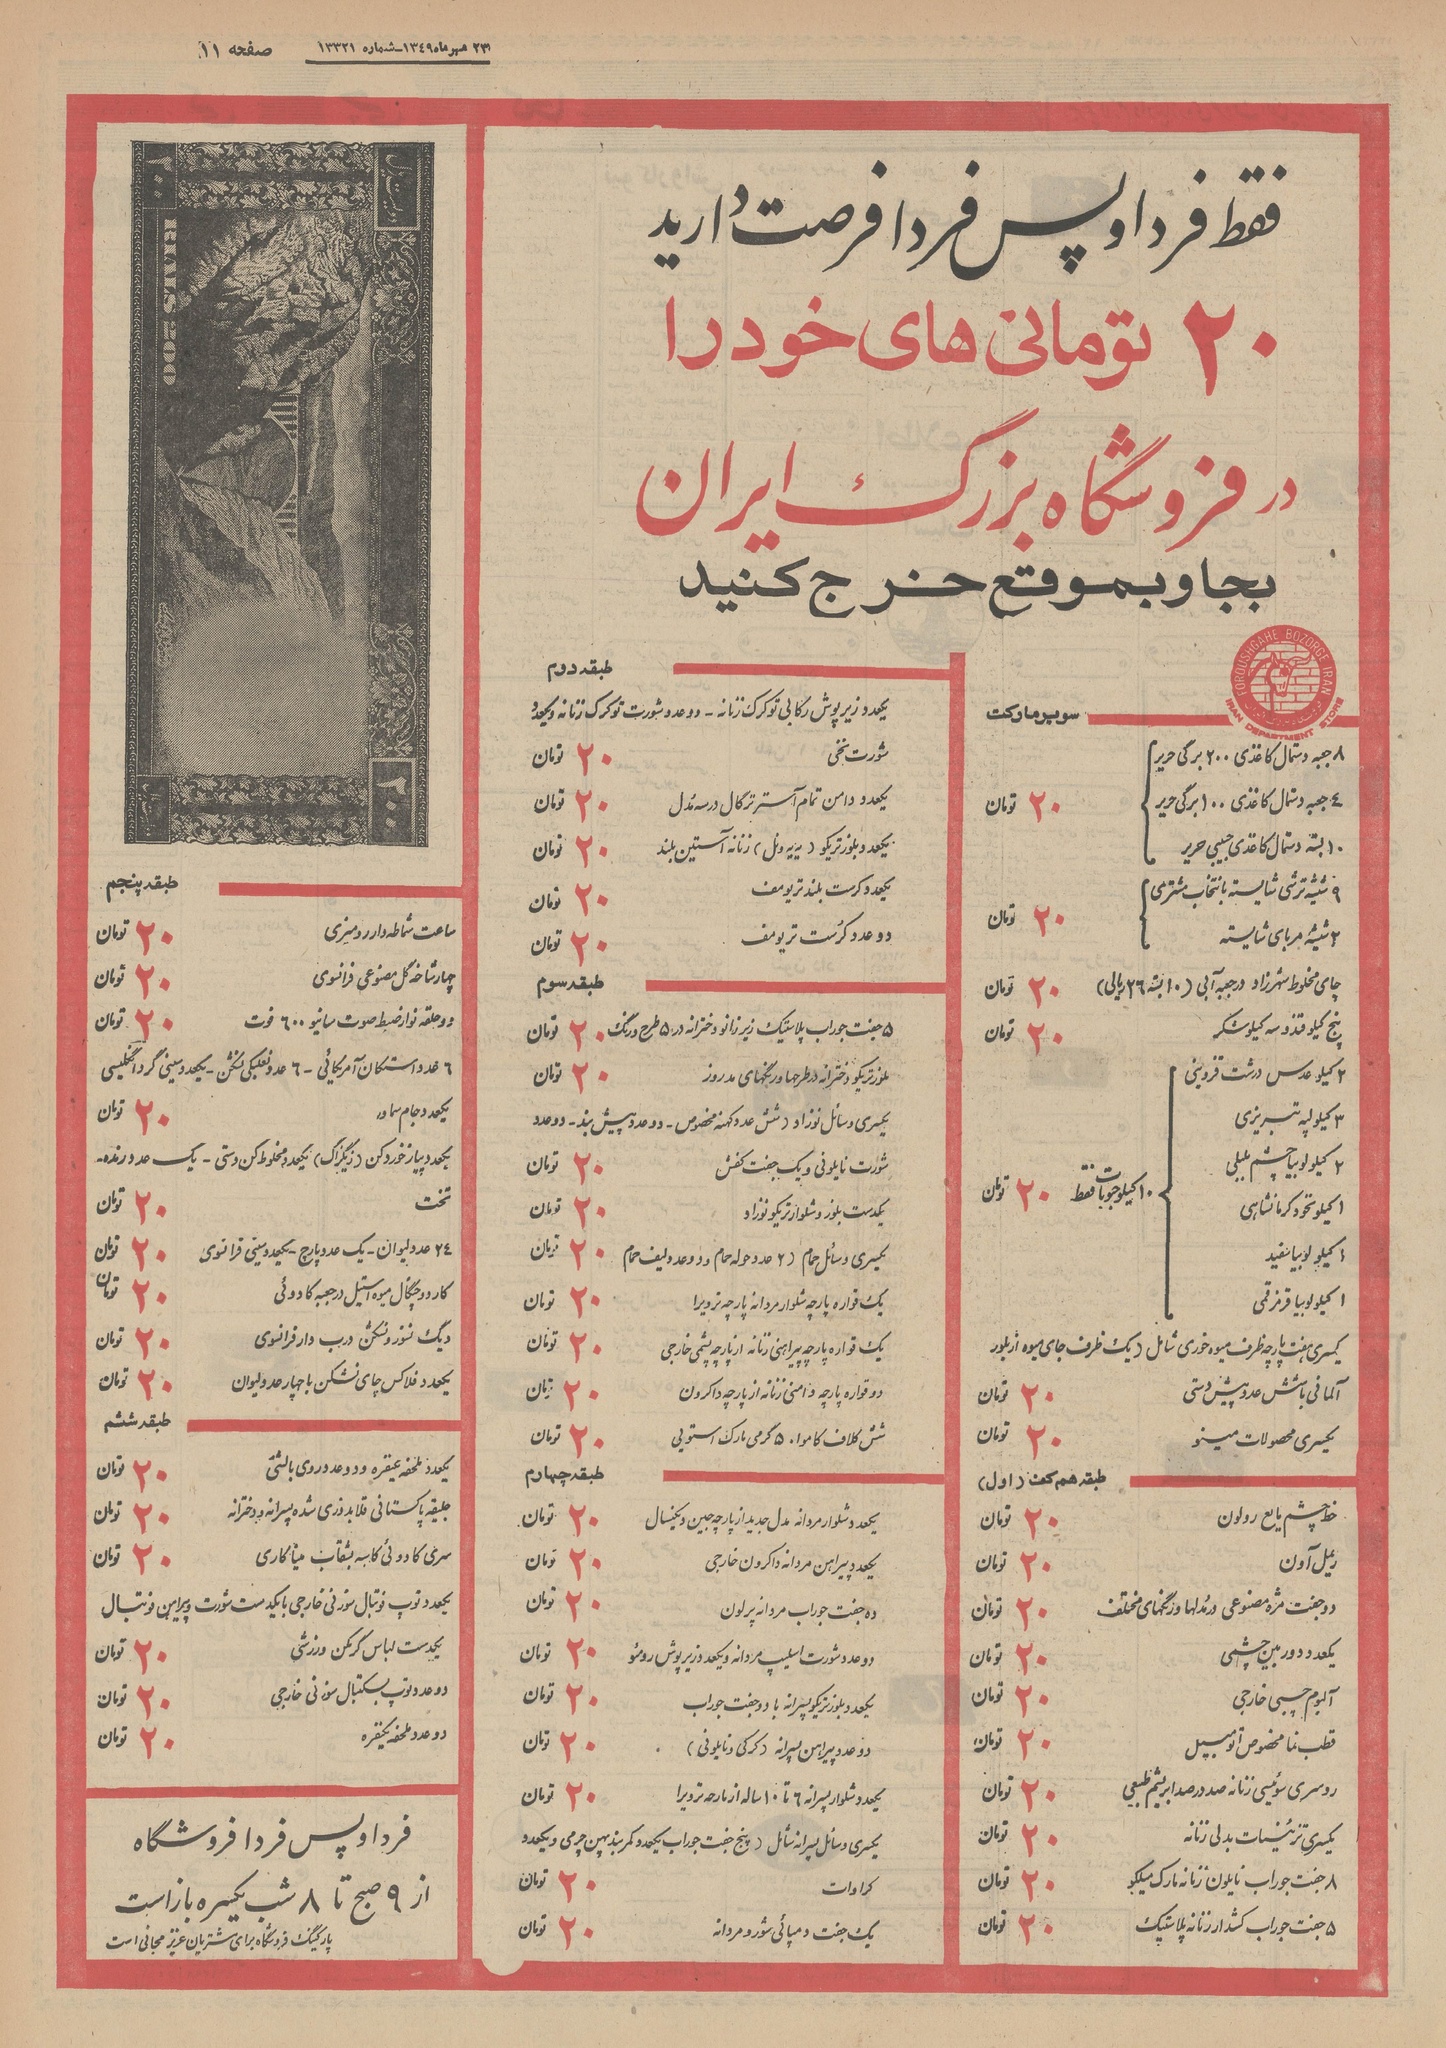 ۲۳ مهر ماه ۱۳٤۹ـ شماره ۱۳۳۲۱
صفحه ۱۱
فقط فردا و پس فردا فرصت دارید
۲۰ تومانی های خود را
در فروشگاه بزرگ ایران
بجا و بموقع خرج کنید
FOROUSHGAHE BOZORGE IRAN
IRAN DEPARTMENT STORE
سوپر مارکت
۸ جعبه دستمال کاغذی ۲۰۰ برگی حریر
٤ جعبه دستمال کاغذی ۱۰۰ برگی حریر
۱۰ بسته دستمال کاغذی جیبی حریر
۲۰ تومان
۹ شیشه ترشی شایسته بانتخاب مشتری
۲ شیشه مربای شایسته
۲۰ تومان
چای مخلوط شهرزاد در جعبه آبی (۱۰ بسته ۲۶ ریالی) ۲۰ تومان
پنج کیلو قند و سه کیلو شکر ۲۰ تومان
۲ کیلو عدس درشت قزوینی
۳ کیلو لپه تبریزی
۲ کیلو لوبیا چشم بلبلی
۱ کیلو نخود کرمانشاهی
۱ کیلو لوبیا سفید
۱ کیلو لوبیا قرمز قمی
۱۰ کیلو حبوبات فقط ۲۰ تومان
یکسری هفت پارچه ظرف میوه خوری شامل (یک ظرف جای میوه از بلور
آلمانی با شش عدد پیش دستی ۲۰ تومان
یکسری محصولات مینو ۲۰ تومان
طبقه هم کف (اول)
خط چشم مایع رولون ۲۰ تومان
ریمل آون ۲۰ تومان
دو جفت مژه مصنوعی در مدلها و رنگهای مختلف ۲۰ تومان
یکعدد دوربین چشمی ۲۰ تومان
آلبوم جیبی خارجی ۲۰ تومان
قطب نما مخصوص اتومبیل ۲۰ تومان
روسری سوئیسی زنانه صد در صد ابریشم طبیعی ۲۰ تومان
یکسری تزئینات بدلی زنانه ۲۰ تومان
۸ جفت جوراب نایلون زنانه مارک میلکو ۲۰ تومان
۵ جفت جوراب کشدار زنانه پلاستیک ۲۰ تومان
طبقه دوم
یکعدد زیرپوش رکابی توکرک زنانه - دو عدد شورت توکرک زنانه و یکعدد
شورت نخی ۲۰ تومان
یکعدد دامن تمام آستر ترگال در سه مدل ۲۰ تومان
یکعدد بلوز تریکو (به به ونل) زنانه آستین بلند ۲۰ تومان
یکعدد کرست بلند تریومف ۲۰ تومان
دو عدد کرست تریومف ۲۰ تومان
طبقه سوم
۵ جفت جوراب پلاستیک زیر زانو دخترانه در ۵ طرح و رنگ ۲۰ تومان
بلوز تریکو دخترانه در طرحها و رنگهای مد روز ۲۰ تومان
یکسری وسائل نوزاد (شش عدد کهنه مخصوص - دو عدد پیش بند - دو عدد
شورت نایلونی و یک جفت کفش ۲۰ تومان
یکدست بلوز و شلوار تریکو نوزاد ۲۰ تومان
یکسری وسائل حمام (۲ عدد حوله حمام و دو عدد لیف حمام ۲۰ تومان
یک قواره پارچه شلوار مردانه پارچه ترویرا ۲۰ تومان
یک قواره پارچه پیراهنی زنانه از پارچه پشمی خارجی ۲۰ تومان
دو قواره پارچه دامنی زنانه از پارچه داکرون ۲۰ تومان
شش کلاف کاموا ۵۰ گرمی مارک استویی ۲۰ تومان
طبقه چهارم
یکعدد شلوار مردانه مدل جدید از پارچه جین و یکنیسال ۲۰ تومان
یکعدد پیراهن مردانه داکرون خارجی ۲۰ تومان
ده جفت جوراب مردانه پرلون ۲۰ تومان
دو عدد شورت اسلیپ مردانه و یکعدد زیرپوش رومئو ۲۰ تومان
یکعدد بلوز تریکو پسرانه با دو جفت جوراب ۲۰ تومان
دو عدد پیراهن پسرانه (کرکی و نایلونی) ۲۰ تومان
یکعدد شلوار پسرانه ۶ تا ۱۰ ساله از پارچه ترویرا ۲۰ تومان
یکسری وسائل پسرانه شامل (پنج جفت جوراب یکعدد کمربند پهن چرمی و یکعدد
کراوات ۲۰ تومان
یک جفت دمپائی شورو مردانه ۲۰ تومان
۲۰۰
دویست ریال
RIALS 200
۲۰۰
طبقه پنجم
ساعت شماطه دار رومیزی ۲۰ تومان
چهار شاخه گل مصنوعی فرانسوی ۲۰ تومان
دو حلقه نوار ضبط صوت سانیو ۶۰۰ فوت ۲۰ تومان
۶ عدد استکان آمریکائی - ۶ عدد نعلبکی نشکن - یکعدد سینی گرد انگلیسی
یکعدد جام سماور ۲۰ تومان
یکعدد پیاز خورد کن (زیگزاک) یکعدد مخلوط کن دستی - یک عدد رنده -
تخت ۲۰ تومان
۲٤ عدد لیوان - یک عدد پارچ - یکعدد سینی فرانسوی ۲۰ تومان
کارد و چنگال میوه استیل در جعبه کادوئی ۲۰ تومان
دیگ نسوز و نشکن درب دار فرانسوی ۲۰ تومان
یکعدد فلاکس چای نشکن با چهار عدد لیوان ۲۰ تومان
طبقه ششم
یکعدد ملحفه یکنفره و دو عدد روی بالشی ۲۰ تومان
جلیقه پاکستانی قلابدوزی شده پسرانه و دخترانه ۲۰ تومان
سری کادوئی کاسه بشقاب میناکاری ۲۰ تومان
یکعدد توپ فوتبال سوزنی خارجی با یکدست شورت و پیراهن فوتبال
یکدست لباس گرمکن ورزشی ۲۰ تومان
دو عدد توپ بسکتبال سوزنی خارجی ۲۰ تومان
دو عدد ملحفه یکنفره ۲۰ تومان
فردا و پس فردا فروشگاه
از ۹ صبح تا ۸ شب یکسره باز است
پارکینگ فروشگاه برای مشتریان عزیز مجانی است